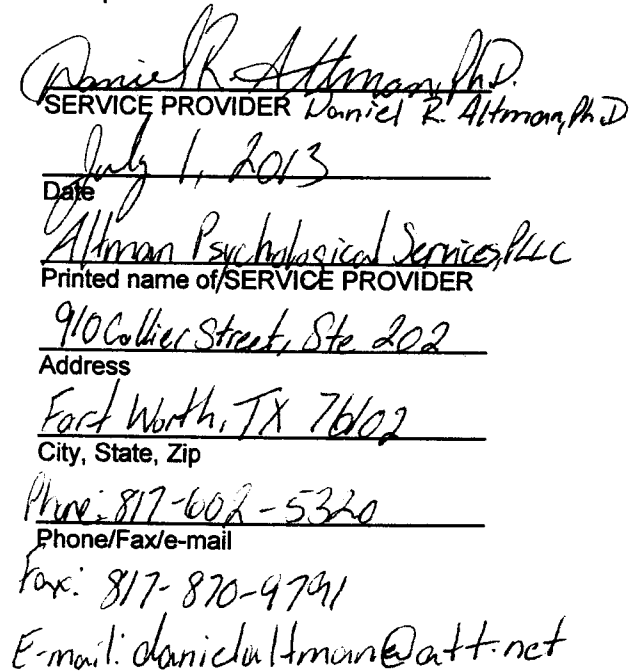 Daniel R. Altman, Ph.D.
SERVICE PROVIDER Daniel R. Altman, Ph.D
July 1, 2013
Date
Altman Psychological Services, PLLC
Printed name of SERVICE PROVIDER
910 Collier Street, Ste 202
Address
Fort Worth, TX 76102
City, State, Zip
Phone: 817-602-5320
Phone/Fax/e-mail
Fax: 817-870-9791
E-mail: danielaltman@att.net